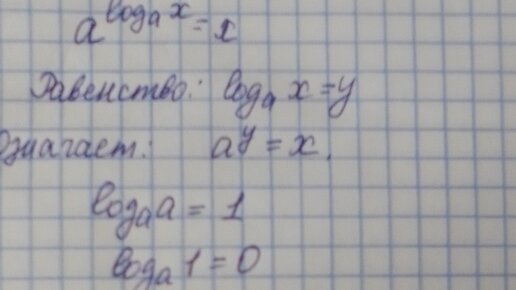 a^{log_a x} = x
Равенство: log_a x = y
Означает: a^y = x.
log_a a = 1
log_a 1 = 0